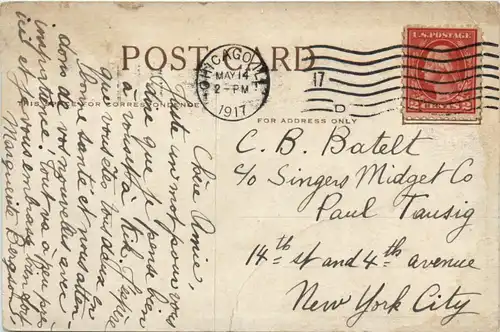 POST CARD
CHICAGO, ILL.
MAY 14
2-PM
1917
17
D
U.S. POSTAGE
2 CENTS 2
THIS SPACE FOR CORRESPONDENCE
FOR ADDRESS ONLY
C. B. Batelt
c/o Singers Midget Co
Paul Tausig
14th st and 4th avenue
New York City
Chère Amie,
Juste un mot pour vous
dire que je pense bien
à vous et à
que vous êtes tous deux en
bonne santé et nous atten-
dons de vos nouvelles avec
impatience. Tout va à peu près
ici et je vous embrasse bien fort
Marguerite Berget